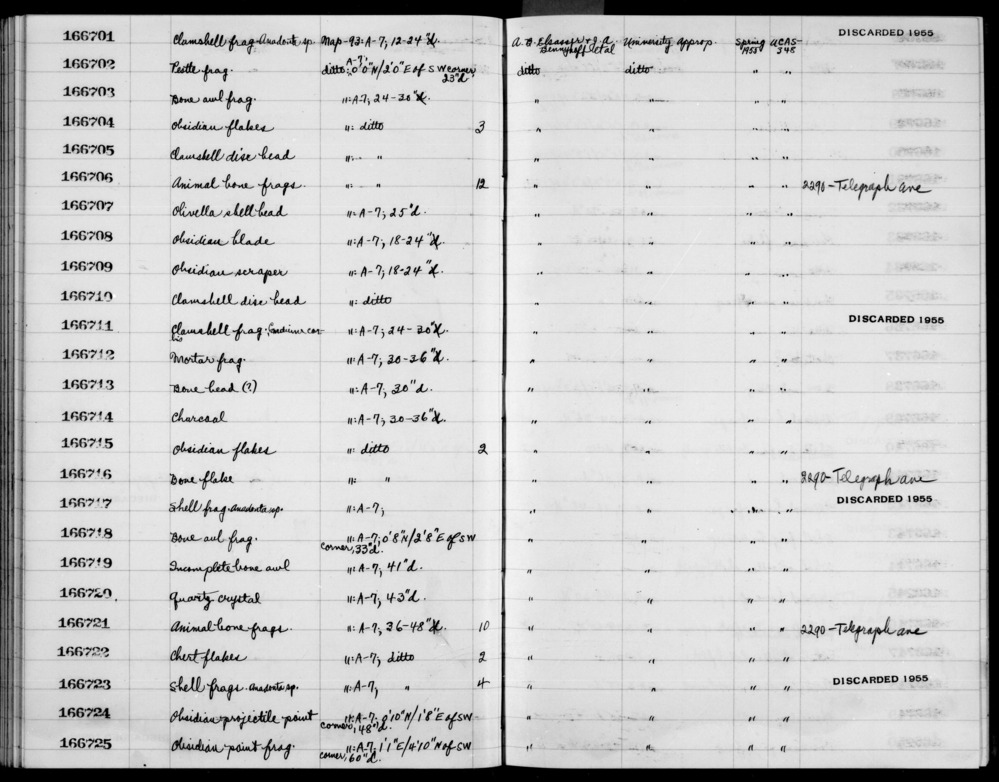 166701 Clamshell frag. Anadonta sp. Map-93: A-7; 12-24"d. A. B. Elsasser & J. A. Bennyhoff et al University approp. Spring 1955 UCAS-348 DISCARDED 1955
166702 Pestle frag. ditto: A-7; 0'0"N/2'0"E of SW corner, 23"d. ditto ditto " "
166703 Bone awl frag. ": A-7; 24-30"d. " " " "
166704 Obsidian flakes ": ditto 3 " " " "
166705 Clamshell disc bead ": " " " " "
166706 Animal bone frags. ": " 12 " " " " 2290-Telegraph ave
166707 Olivella shell bead ": A-7; 25"d. " " " "
166708 Obsidian blade ": A-7; 18-24"d. " " " "
166709 Obsidian scraper ": A-7; 18-24"d. " " " "
166710 Clamshell disc bead ": ditto " " " "
166711 Clamshell frag. Cardium cor- ": A-7; 24-30"d. " " " " DISCARDED 1955
166712 Mortar frag. ": A-7; 30-36"d. " " " "
166713 Bone bead (?) ": A-7; 30"d. " " " "
166714 Charcoal ": A-7; 30-36"d. " " " "
166715 Obsidian flakes ": ditto 2 " " " "
166716 Bone flake ": " " " " " 2290-Telegraph ave
166717 Shell frag. Anadonta sp. ": A-7; " " " " DISCARDED 1955
166718 Bone awl frag. ": A-7; 0'8"N/2'8"E of SW
corner, 33"d. " " " "
166719 Incomplete bone awl ": A-7; 41"d. " " " "
166720 Quartz crystal ": A-7; 43"d. " " " "
166721 Animal bone frags. ": A-7; 36-48"d. 10 " " " " 2290-Telegraph ave
166722 Chert flakes ": A-7; ditto 2 " " " "
166723 Shell frags. Anadonta sp. ": A-7; " 4 " " " " DISCARDED 1955
166724 Obsidian projectile point ": A-7; 0'10"N/1'8"E of SW
corner, 48"d. " " " "
166725 Obsidian point frag. ": A-7; 1'1"E/4'10"N of SW
corner, 60"d. " " " "